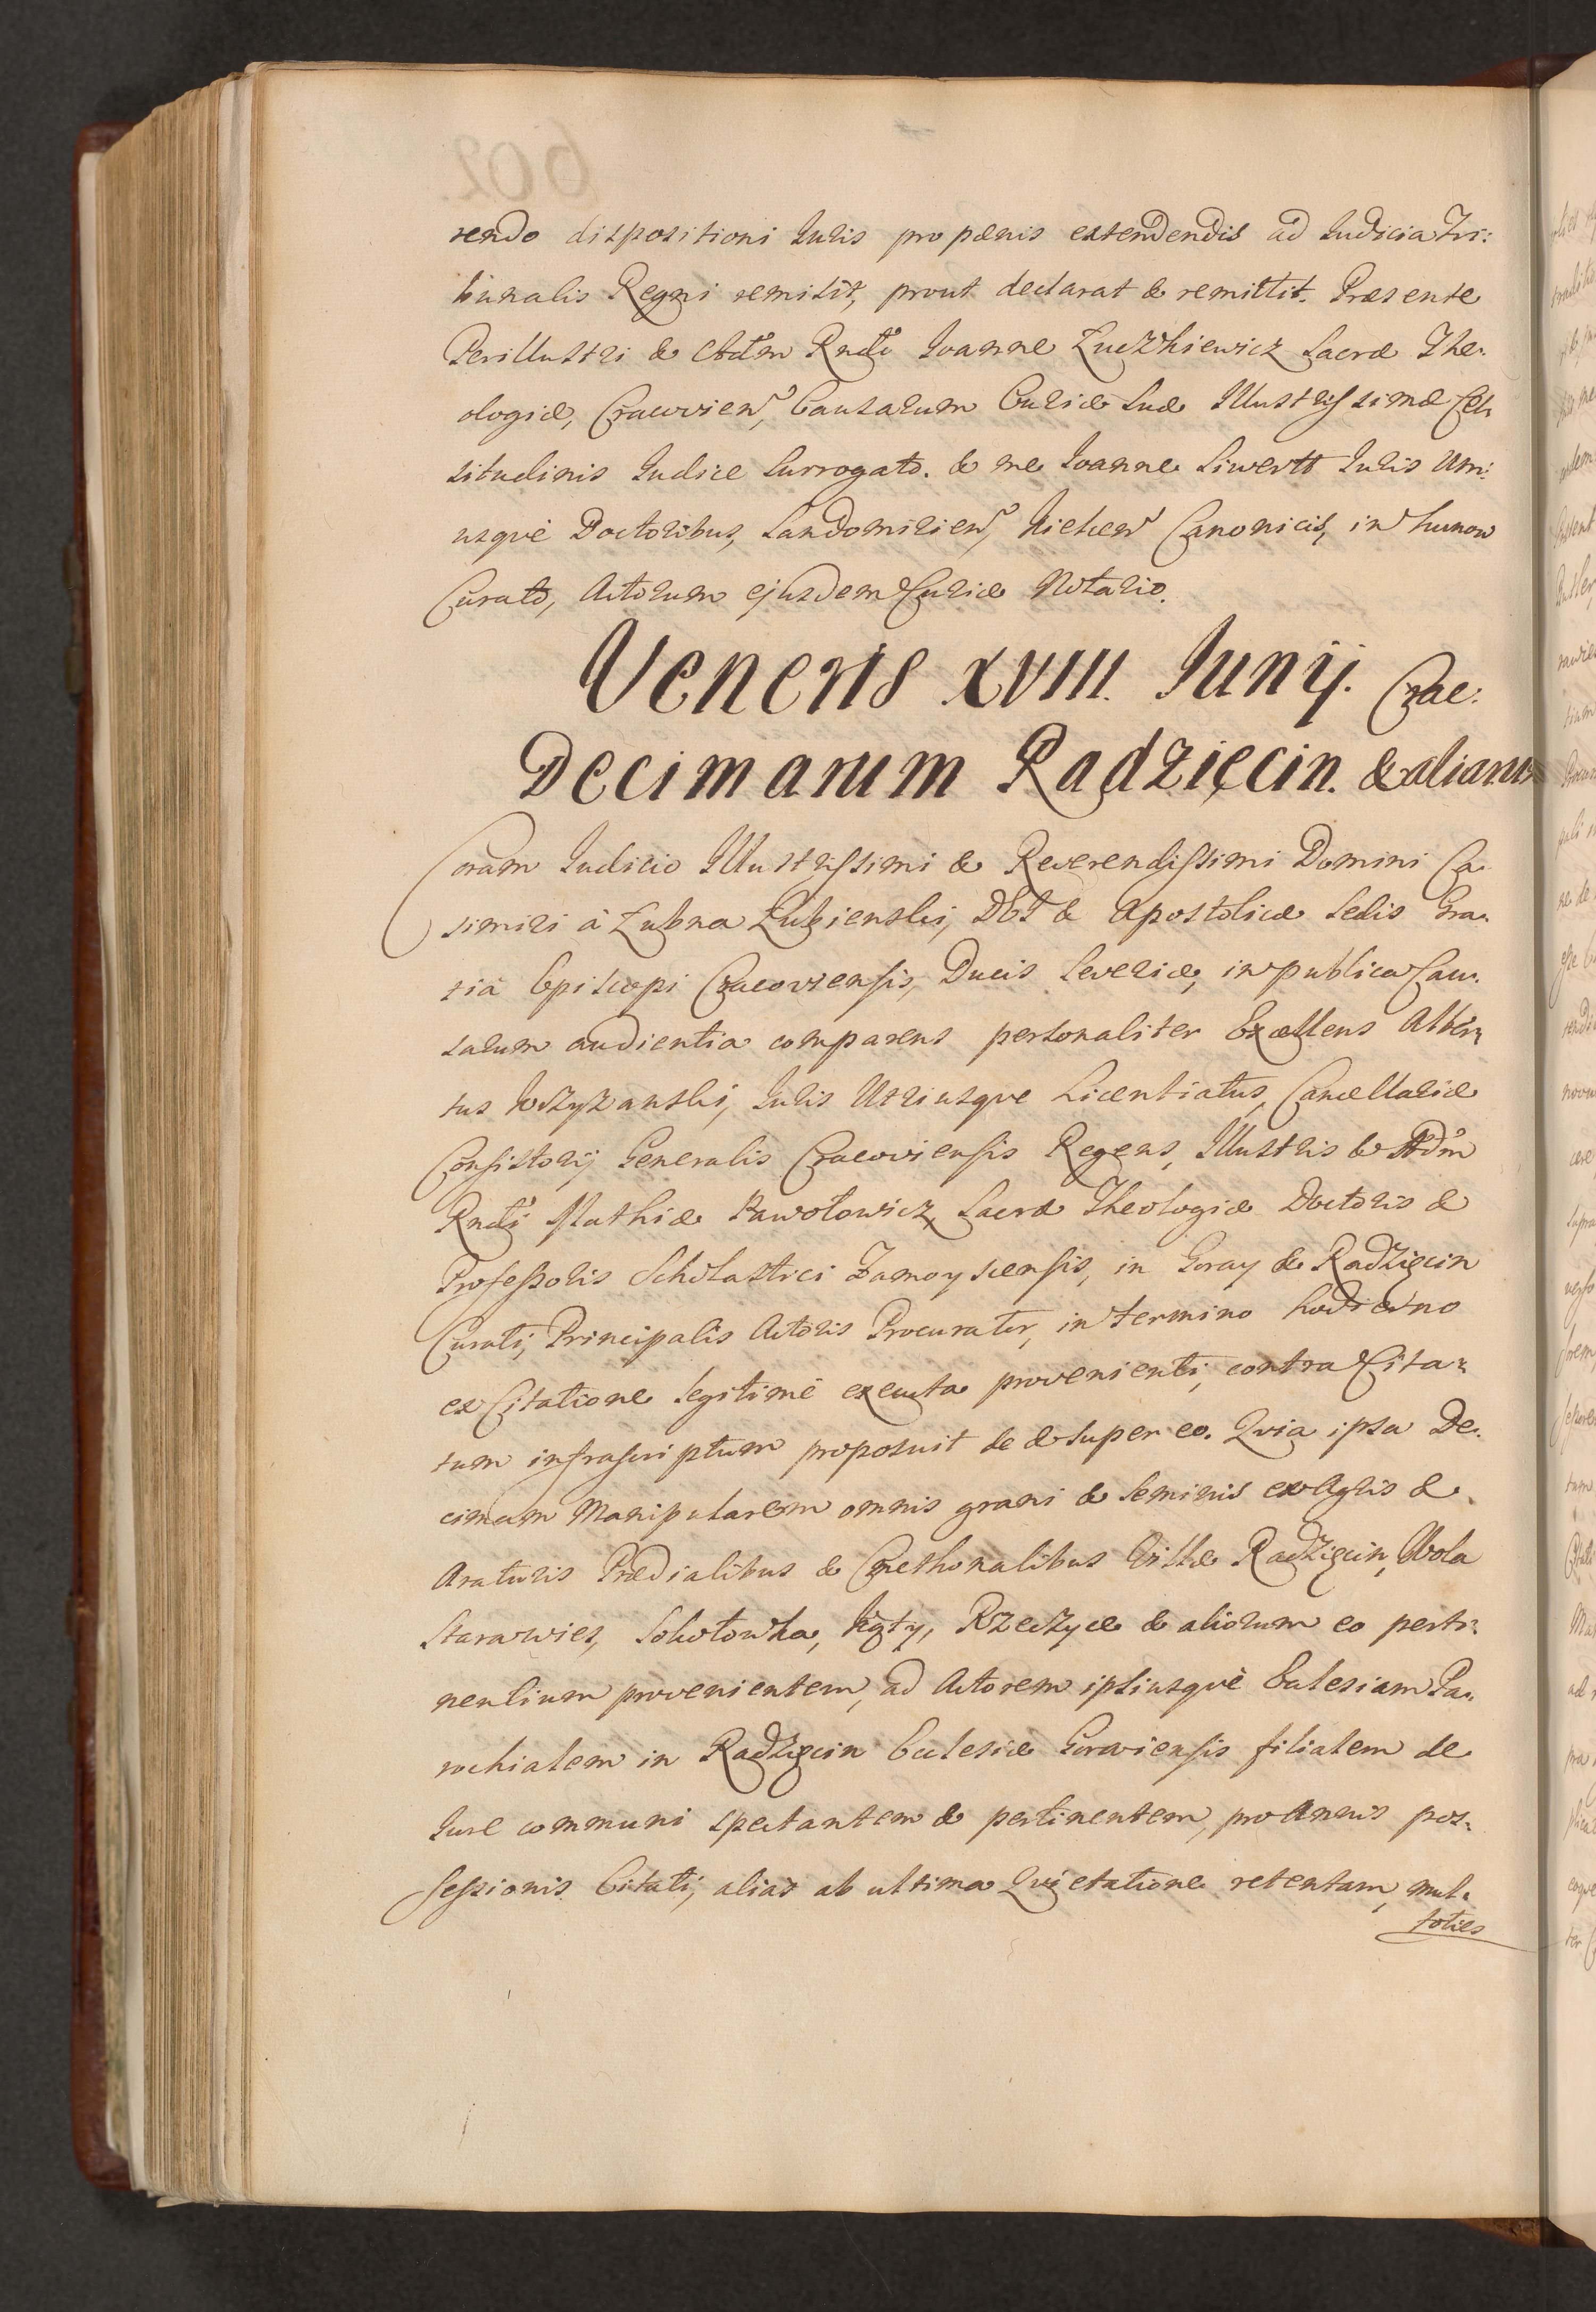 rendo dispositioni Iuris pro pænis extendendis ad Iudicia Tri:
bunalis Regni remisit, prout declarat & remittit. Præsente
Perillustri & Adm Rndo Ioanne Łuczkiewicz Sacræ The-
ologiæ, Cracovien, Causarum Curiæ Suæ Illustrissimæ Cel-
situdinis Iudice Surrogato. & me Ioanne Siwertt Iuris Utri:
usque Doctoribus, Sandomirien, Kielcen Canonicis, in
Curato, Actorum ejusdem Curiæ Notario.
Veneris XVIII. Junij. Crac:
Decimarum Radzięcin. & aliarum
Coram Iudicio Illustrissimi & Reverendissimi Domini Ca-
simiri à Łubna Łubienski, DEI & Apostolicæ Sedis Gra-
tia Episcopi Cracoviensis, Ducis Severiæ, in publica Cau-
sarum audientia comparens personaliter Excellens Alber-
tus Iuris Utriusque Licentiatus, Cancellariæ
Consistorij Generalis Cracoviensis Regens, Illustris & Adm
Rndi Mathiæ Pawołowicz, Sacræ Theologiæ Doctoris &
Professoris Scholastici Zamoyscensis, in Goray & Radzięcin
Curati, Principalis Actoris Procurator, in termino hodierno
ex Citatione legitimè executa provenienti, contra Cita-
tum infrascriptum proposuit de & super eo. Quia ipsa De-
cimam Manipularem omnis grani & seminis ex Agris &
Araturis Prædialibus & Cmethonalibus Villæ Radzięcin, Wola
Starawies, Sokołowka, Kąty, Rzeczyce & aliorum eo perti-
nentium provenientem, ad Actorem ipsiusquè Eclesiam Pa-
rochialem in Radzięcin Ecclesiæ Goraviensis filialem de
Iure communi spectantem & pertinentem, pro Annis pos-
sessionis Citati, alias ab ultima Quietatione retentam, mul-
toties